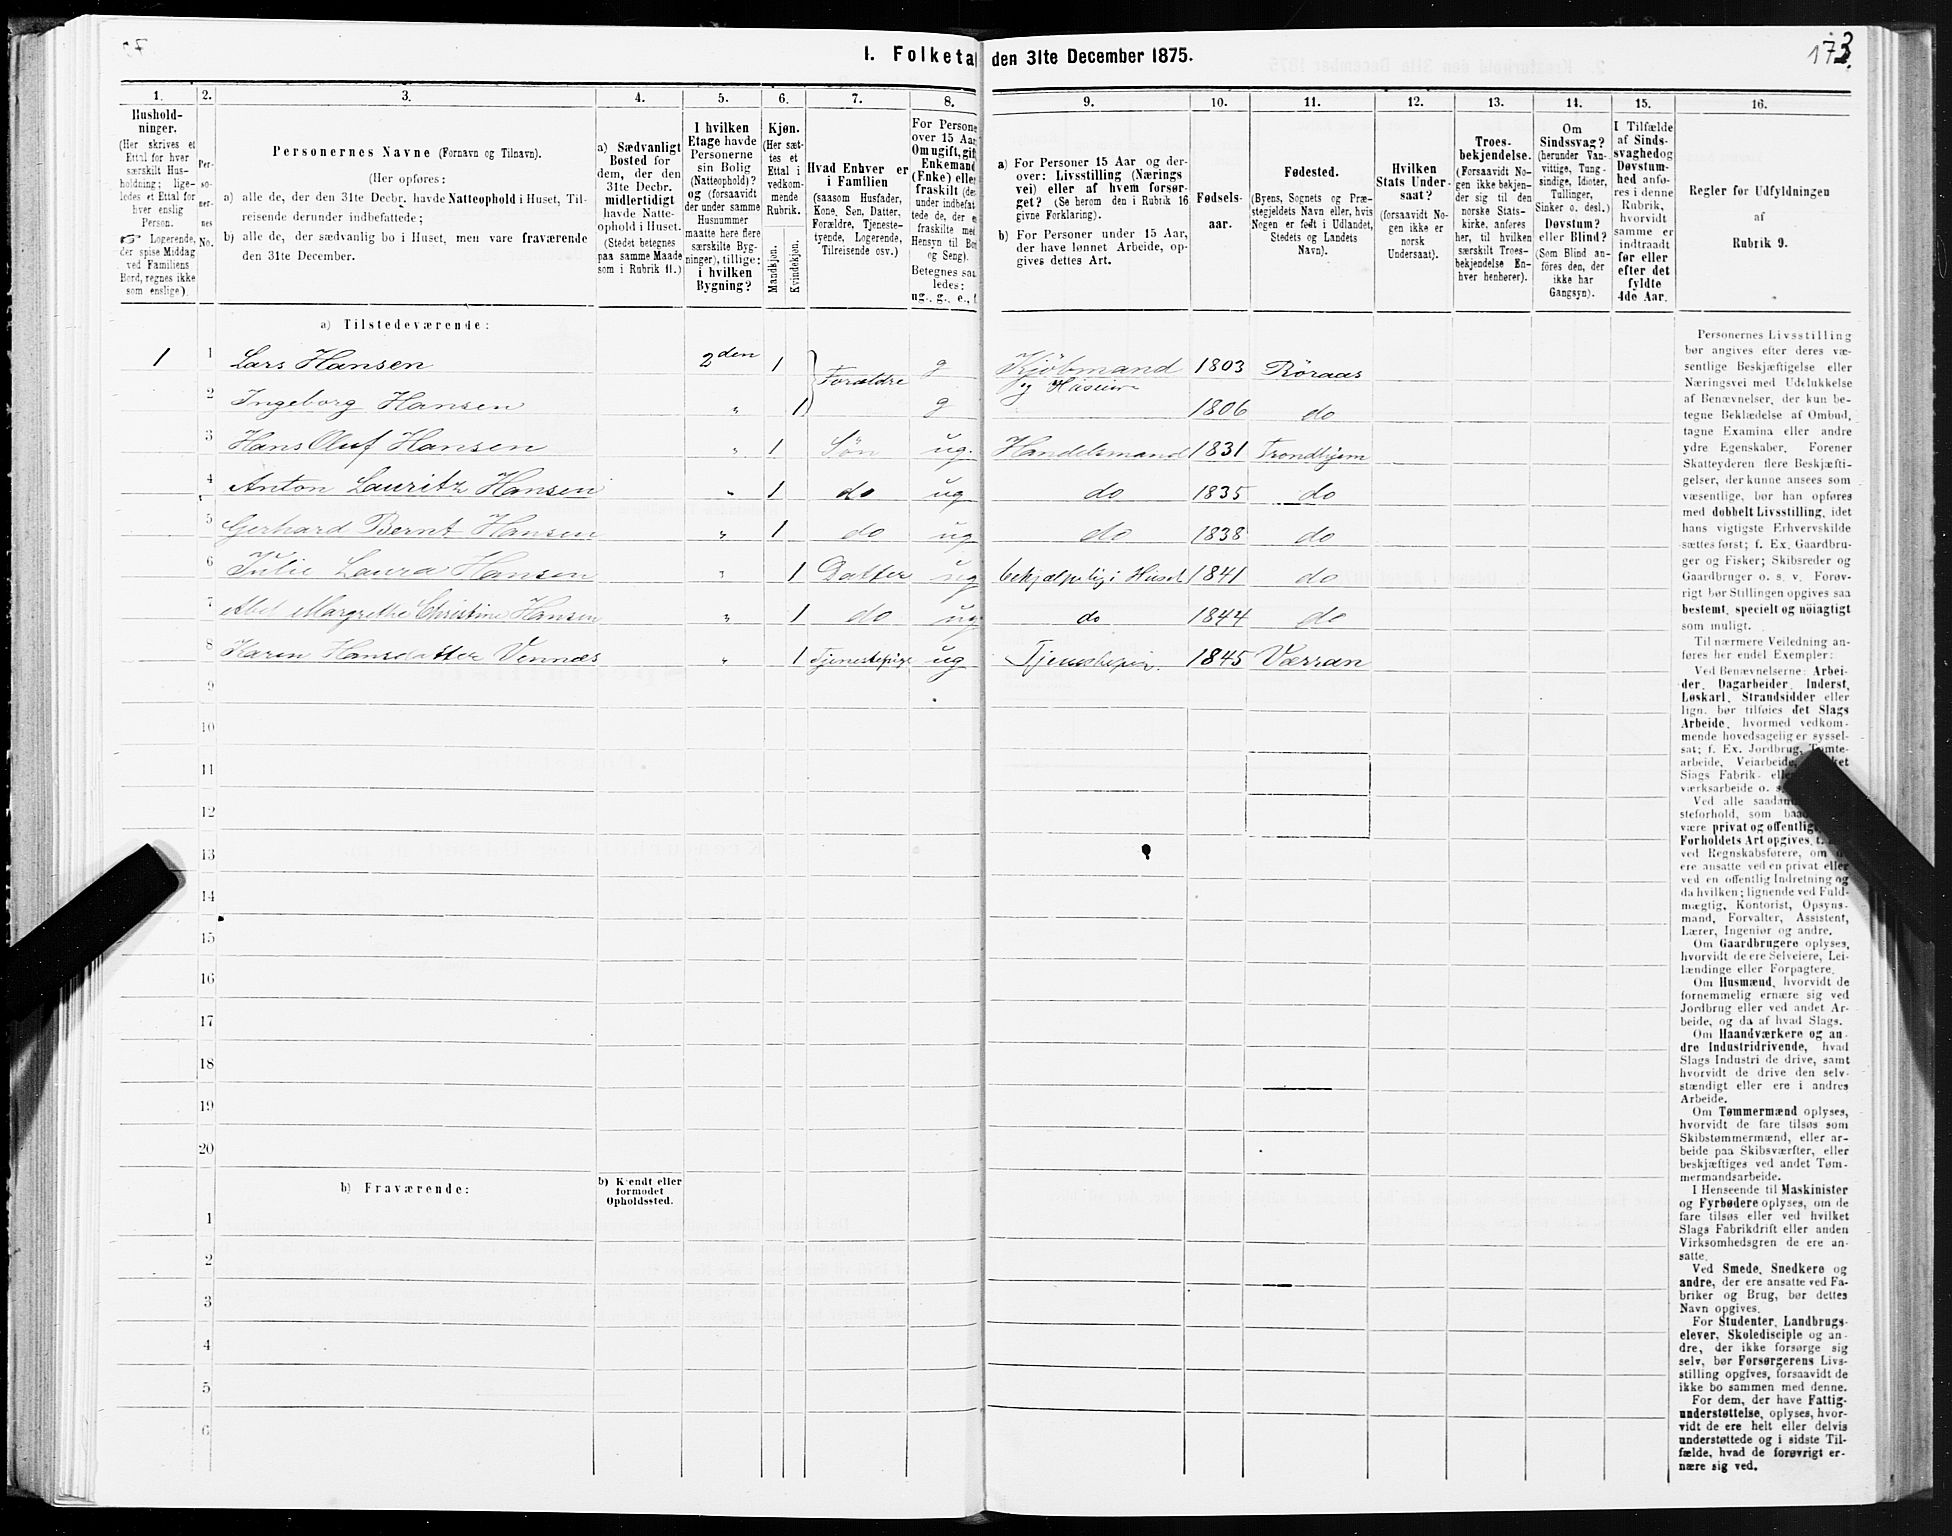 173.
I. Folketal den 31te December 1875.
1. 2. 3. 4. 5. 6. 7. 8. 9. 10. 11. 12. 13. 14. 15. 16.
Hushold-
ninger.
(Her skrives et
Ettal for hver
særskilt Hus-
holdning; lige-
ledes et Ettal for
hver enslig
Person.
☞ Logerende,
der spise Middag
ved Familiens
Bord, regnes ikke
som enslige).
Per-
so-
ner-
nes
No.
Personernes Navne (Fornavn og Tilnavn).
(Her opføres:
a) alle de, der den 31te Decbr. havde Natteophold i Huset, Til-
reisende derunder indbefattede;
b) alle de, der sædvanlig bo i Huset, men vare fraværende
den 31te December.
a) Sædvanligt
Bosted for
dem, der den
31te Decbr.
midlertidigt
havde Natte-
ophold i Huset.
(Stedet betegnes
paa samme Maade
som i Rubrik 11.)
I hvilken
Etage havde
Personerne
sin Bolig
(Natteophold)?
og (forsaavidt
der under samme
Husnummer
maatte here flere
særskilte Byg-
ninger), tillige:
i hvilken
Bygning?
Kjøn.
(Her sæt-
tes et
Ettal i
vedkom-
mende
Rubrik.
Mandkjøn.
Kvindekjøn.
Hvad Enhver er
i Familien
(saasom Husfader,
Kone, Søn, Datter,
Forældre, Tjeneste-
tyende, Logerende,
Tilreisende osv.)
For Persone
over 15 Aar
Om ugift, gift
Enkemand
(Enke) elle
fraskilt (de
under indbefat
tede de, der e
fraskilte med
Hensyn til Bo
og Seng).
Betegnes saa
ledes:
ug., g., e., f
a) For Personer 15 Aar og der-
over: Livsstilling (Nærings
vei) eller af hvem forsør-
get? (Se herom den i Rubrik 16
givne Forklaring).
b) For Personer under 15 Aar,
der have lønnet Arbeide, op-
gives dettes Art.
Fødsels-
aar.
Fødested.
(Byens, Sognets og Præ-
stegjeldets Navn eller, hvis
Nogen er født i Udlandet,
Stedets og Landets
Navn).
Hvilken
Stats Under-
saat?
(forsaavidt No-
gen ikke er
norsk
Undersaat).
Troes-
bekjendelse.
(Forsaavidt No-
gen ikke bekjen-
der sig til den
norske Stats-
kirke, anføres
her, til hvilken
særskilt Troes-
bekjendelse En-
hver henhører).
Om
Sindssvag?
(herunder Van-
vittige, Tung-
sindige, Idioter,
Tullinger,
Sinker o. desl.)
Døvstum?
eller Blind?
(Som Blind an-
føres den, der
ikke har
Gangsyn).
I Tilfælde
af Sinds-
svaghed og
Døvstum-
hed anfø-
res i denne
Rubrik,
hvorvidt
samme er
indtraadt
før eller
efter det
fyldte
4de Aar.
Regler for Udfyldningen
af
Rubrik 9.
a) Tilstedeværende:
1 1 Lars Hansen 2den 1 Forældre g Kjöbmand 1803 Röraas
2 Ingeborg Hansen " 1 g 1806 do
3 Hans Oluf Hansen " 1 Sön ug. Handelsmand 1831 Trondhjem
4 Anton Lauritz Hansen " 1 do ug do 1835 do
5 Gerhard Bernt Hansen " 1 do ug do 1838 do
6 Julie Laura Hansen " 1 Datter ug behjælpelig i Huset 1841 do
7 Abel Margrethe Christine Hansen " 1 do ug do 1844 do
8 Karen Hansdatter Vennæs " 1 Tjenestepige ug Tjenestepige 1845 Værran
9
10
11
12
13
14
15
16
17
18
19
20
b) Fraværende:
b) Kjendt eller
formodet
Opholdssted.
1
2
3
4
5
6
Personernes Livsstilling
bør angives efter deres væ-
sentlige Beskjæftigelse eller
Næringsvei med Udelukkelse
af Benævnelser, der kun be-
tegne Beklædelse af Ombud,
tagne Examina eller andre
ydre Egenskaber. Forener
Skatteyderen flere Beskjæfti-
gelser, der kunne ansees som
væsentlige, bør han opføres
med dobbelt Livsstilling, idet
hans vigtigste Erhvervskilde
sættes først; f. Ex. Gaardbru-
ger og Fisker; Skibsreder og
Gaardbruger o. s. v. Forøv-
rigt bør Stillingen opgives saa
bestemt, specielt og nøiagtigt
som muligt.
Til nærmere Veiledning an-
føres her endel Exempler:
Ved Benævnelserne: Arbei-
der, Dagarbeider, Inderst,
Løskarl, Strandsidder eller
lign. bør tilføies det Slags
Arbeide, hvormed vedkom-
mende hovedsagelig er syssel-
sat; f. Ex. Jordbrug, Tomte-
arbeide, Veiarbeide,
Slags Fabrik-
værksarbeide o.
Ved alle
steforhold, som
være privat og offentlig,
Forholdets Art opgives,
ved Regnskabsførere, om
ere ansatte ved en privat eller
ved en offentlig Indretning og
da hvilken; lignende ved Fuld-
mægtig, Kontorist, Opsyns-
mand, Forvalter, Assistent,
Lærer, Ingeniør og andre.
Om Gaardbrugere oplyses,
hvorvidt de ere Selveiere, Lei-
lændinge eller Forpagtere.
Om Husmænd, hvorvidt de
fornemmelig ernære sig ved
Jordbrug eller ved andet Ar-
beide, og da af hvad Slags.
Om Haandværkere og an-
dre Industridrivende, hvad
Slags Industri de drive, samt
hvorvidt de drive den selv-
stændigt eller ere i andres
Arbeide.
Om Tømmermænd oplyses,
hvorvidt de fare tilsøs som
Skibstømmermænd, eller ar-
beide paa Skibsværfter, eller
beskjæftiges ved andet Tøm-
mermandsarbeide.
I Henseende til Maskinister
og Fyrbødere oplyses, om de
fare tilsøs eller ved hvilket
Slags Fabrikdrift eller anden
Virksomhedsgren de ere an-
satte.
Ved Smede, Snedkere og
andre, der ere ansatte ved Fa-
briker og Brug, bør dettes
Navn opgives.
For Studenter, Landbrugs-
elever, Skoledisciple og an-
dre, der ikke forsørge sig
selv, bør Forsørgerens Livs-
stilling opgives, forsaavidt de
ikke bo sammen med denne.
For dem, der have Fattig-
understøttelse, oplyses, hvor-
vidt de ere helt eller delvis
understøttede og i sidste Til-
fælde, hvad de forøvrigt er-
nære sig ved.